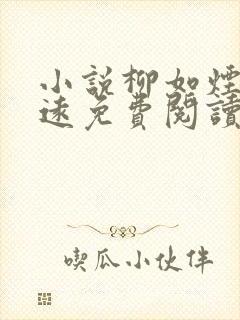 小說柳如煙
遠免費閱讀
喫瓜小伙伴